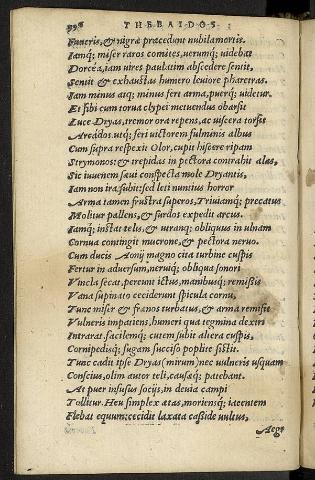 THEBAIDOS.
Funeris, & nigræ præcedunt nubila mortis.
Iamq; miser raros comites, uerumq; uidebat
Dorcea, iam uires paulatim abscedere sentit,
Sentit & exhaustas humero leuiore pharetras.
Iam minus atq; minus fert arma, puerq; uidetur.
Et sibi cum torua clypei metuendus obarsit
Luce Dryas, tremor ora repens, ac uiscera torsit
Arcados. utq; feri uictorem fulminis albus
Cum supra respexit Olor, cupit hiscere ripam
Strymonos: & trepidas in pectora contrahit alas,
Sic iuuenem saui conspecta mole Dryantis,
Iam non ira: subit: sed leti nuntius horror
Arma tamen frustra superos, Triuiamq; precatus
Molitur pallens, & surdos expedit arcus.
Iamq; instat telis, & utranq; obliquus in ulnam
Cornua contingit mucrone, & pectora neruo.
Cum ducis Aonij magno cita turbine cuspis
Fertur in aduersum, neruiq; obliqua sonori
Vincla secat, pereunt ictus, manibusq; remissis
Vana supinato ceciderunt spicula cornu,
Tunc miser & frænos turbatus, & arma remisit
Vulneris impatiens, humeri qua tegmina dexiri
Intrarat facilemq; cutem subit altera cuspis,
Cornipedisq; fugam succiso poplite sistit.
Tunc cadit ipse Dryas (mirum) nec uulneris usquam
Conscius, olim autor teli, causæq; patebant.
At puer infusus socijs, in deuia campi
Tollitur. Heu simplex ætas, moriensq; iacentem
Flebat equum: cecidit laxata casside uultus,
Aegr